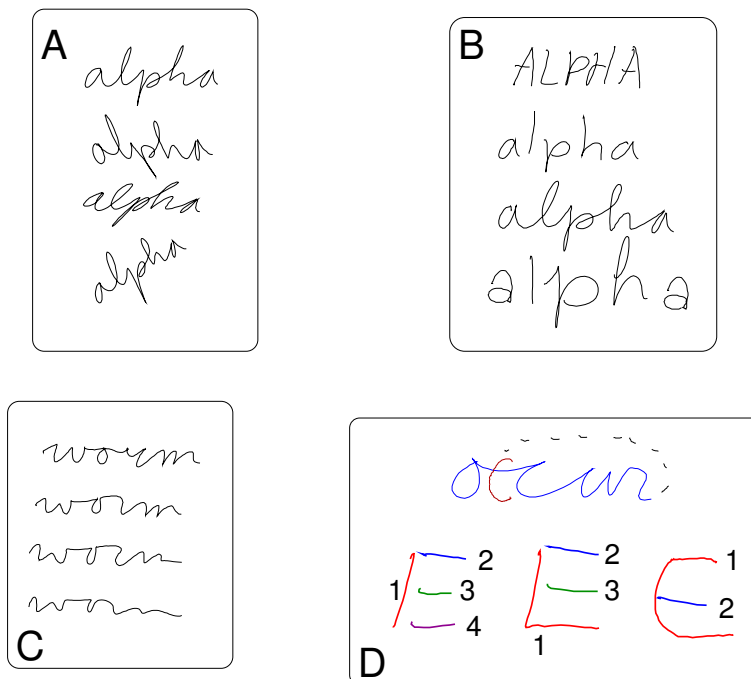 A
alpha
alpha
alpha
alpha
B
ALPHA
alpha
alpha
alpha
C
worm
worm
D
occur
1 2 3 4
1 2 3
1 2